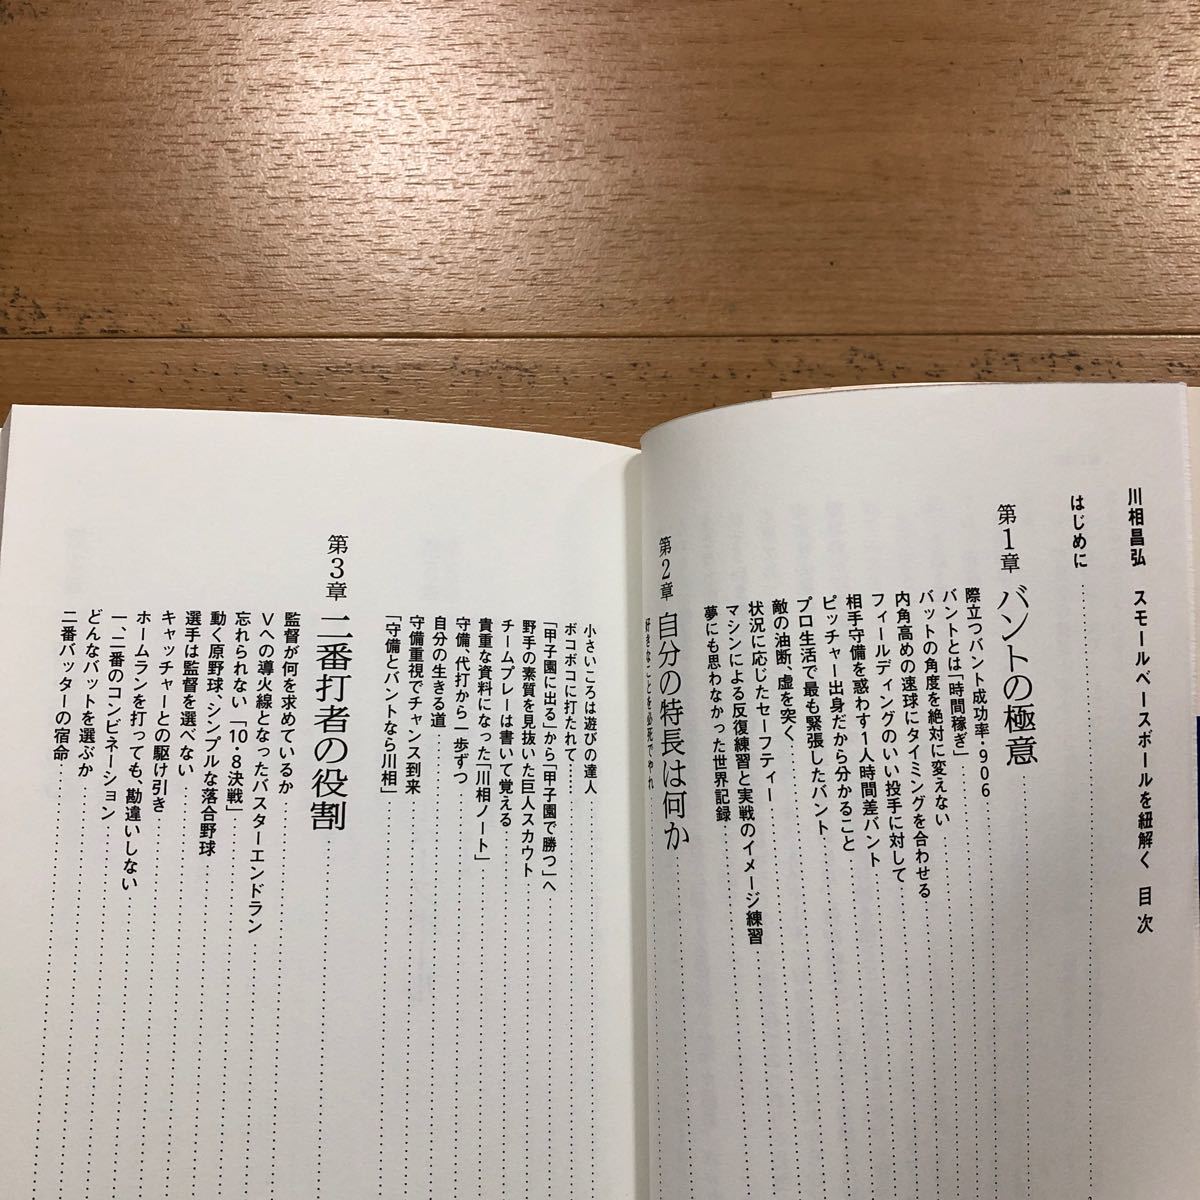 川相昌弘 スモールベースボールを紐解く 目次
はじめに
第1章 バントの極意
際立つバント成功率・906
バントとは「時間稼ぎ」
バットの角度を絶対に変えない
内角高めの速球にタイミングを合わせる
フィールディングのいい投手に対して
相手守備を惑わす1人時間差バント
ピッチャー出身だから分かること
プロ生活で最も緊張したバント
敵の油断、虚を突く
状況に応じたセーフティー
マシンによる反復練習と実戦のイメージ練習
夢にも思わなかった世界記録
第2章 自分の特長は何か
好きなことを必死でやれ
小さいころは遊びの達人
ボコボコに打たれて……
「甲子園に出る」から「甲子園で勝つ」へ
野手の素質を見抜いた巨人スカウト
チームプレーは書いて覚える
貴重な資料になった「川相ノート」
守備、代打から一歩ずつ
自分の生きる道
守備重視でチャンス到来
「守備とバントなら川相」
第3章 二番打者の役割
監督が何を求めているか
Vへの導火線となったバスターエンドラン
忘れられない「10・8決戦」
動く原野球、シンプルな落合野球
選手は監督を選べない
キャッチャーとの駆け引き
ホームランを打っても、勘違いしない
一、二番のコンビネーション
どんなバットを選ぶか
二番バッターの宿命